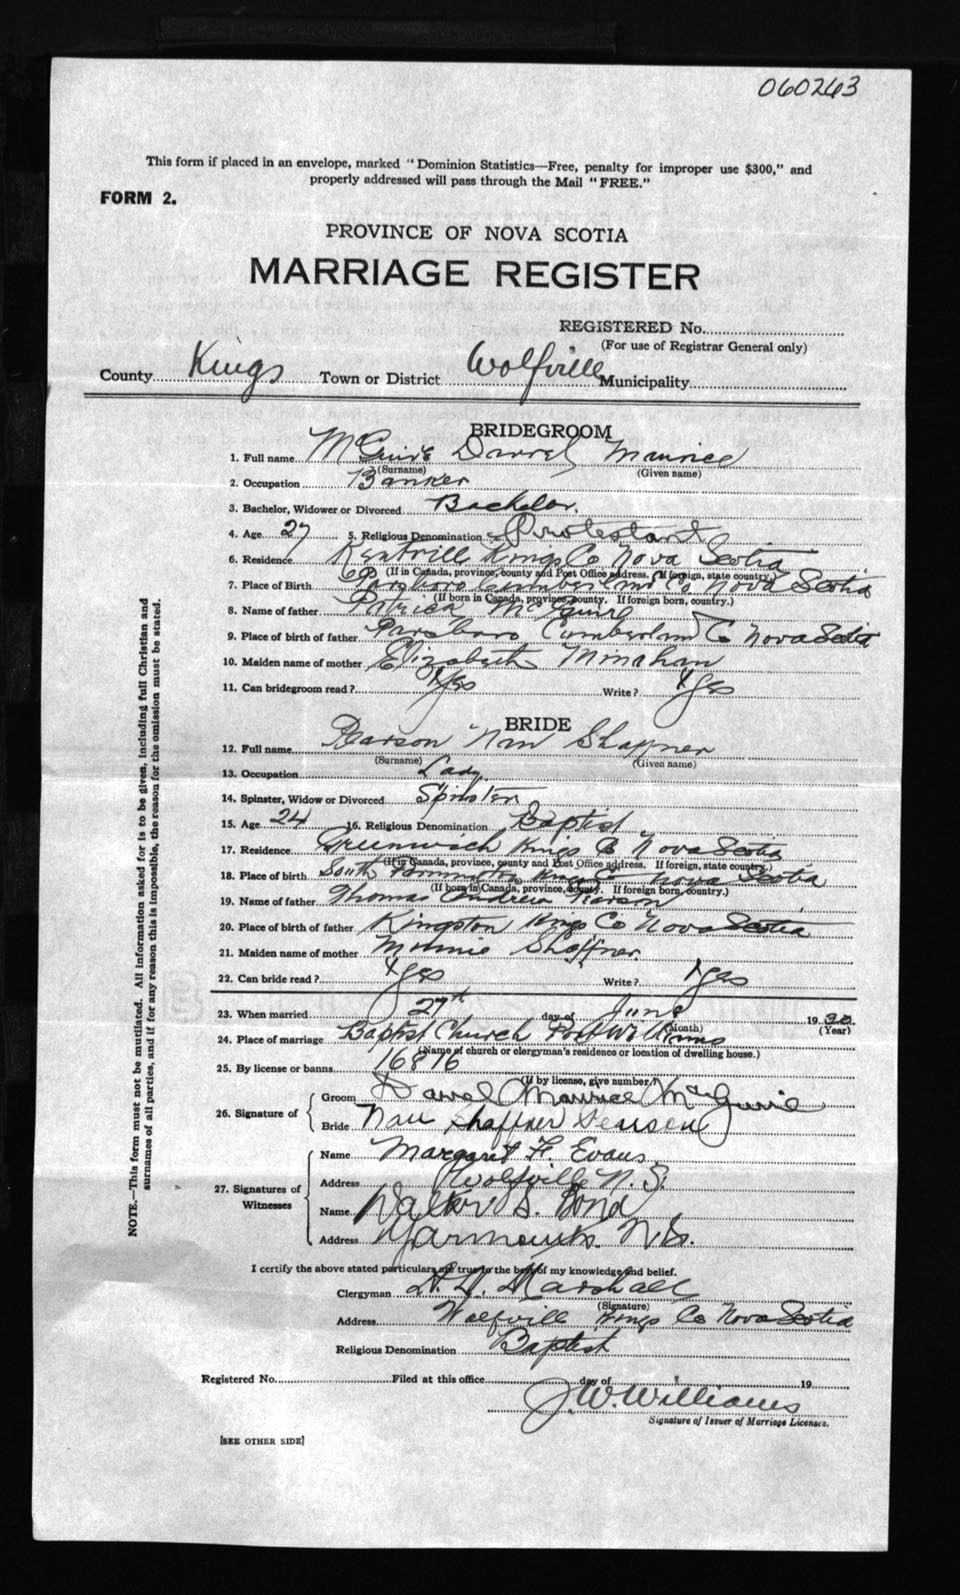 060263
This form if placed in an envelope, marked "Dominion Statistics—Free, penalty for improper use $300," and
properly addressed will pass through the Mail "FREE."
FORM 2.
PROVINCE OF NOVA SCOTIA
MARRIAGE REGISTER
REGISTERED No.
(For use of Registrar General only)
County Kings Town or District Wolfville Municipality
BRIDEGROOM
1. Full name McGuire Darrel Maurice
(Surname) (Given name)
2. Occupation Banker
3. Bachelor, Widower or Divorced Bachelor.
4. Age 27 5. Religious Denomination Protestant
6. Residence Kentville Kings Co Nova Scotia
(If in Canada, province, county and Post Office address. If foreign, state country.)
7. Place of Birth Parsboro Cumberland Co Nova Scotia
(If born in Canada, province, county. If foreign born, country.)
8. Name of father Patrick McGuire
9. Place of birth of father Parsboro Cumberland Co Nova Scotia
10. Maiden name of mother Elizabeth Minahan
11. Can bridegroom read? Yes Write? Yes
BRIDE
12. Full name Pearson Nan Shaffner
(Surname) (Given name)
13. Occupation Lady
14. Spinster, Widow or Divorced Spinster
15. Age 24 16. Religious Denomination Baptist
17. Residence Greenwich Kings Co Nova Scotia
(If in Canada, province, county and Post Office address. If foreign, state country.)
18. Place of birth South Kings Co Nova Scotia
(If born in Canada, province, county. If foreign born, country.)
19. Name of father Thomas Andrew Pearson
20. Place of birth of father Kingston Kings Co Nova Scotia
21. Maiden name of mother Minnie Shaffner
22. Can bride read? Yes Write? Yes
23. When married 27th day of June 1930
(Month) (Year)
24. Place of marriage Baptist Church Port Williams
(Name of church or clergyman's residence or location of dwelling house.)
25. By license or banns 16876
(If by license, give number)
26. Signature of Groom Darrel Maurice McGuire
Bride Nan Shaffner Pearson
27. Signatures of Witnesses
Name Margaret F. Evans
Address Wolfville N.S.
Name Walker S. Bond
Address Yarmouth. N.S.
I certify the above stated particulars are true to the best of my knowledge and belief.
Clergyman Marshall
(Signature)
Address Wolfville Kings Co Nova Scotia
Religious Denomination Baptist
Registered No. Filed at this office day of 19
J.W. Williams
Signature of Issuer of Marriage Licenses.
[SEE OTHER SIDE]
NOTE.—This form must not be mutilated. All information asked for is to be given, including full Christian and
surnames of all parties, and if for any reason this is impossible, the reason for the omission must be stated.